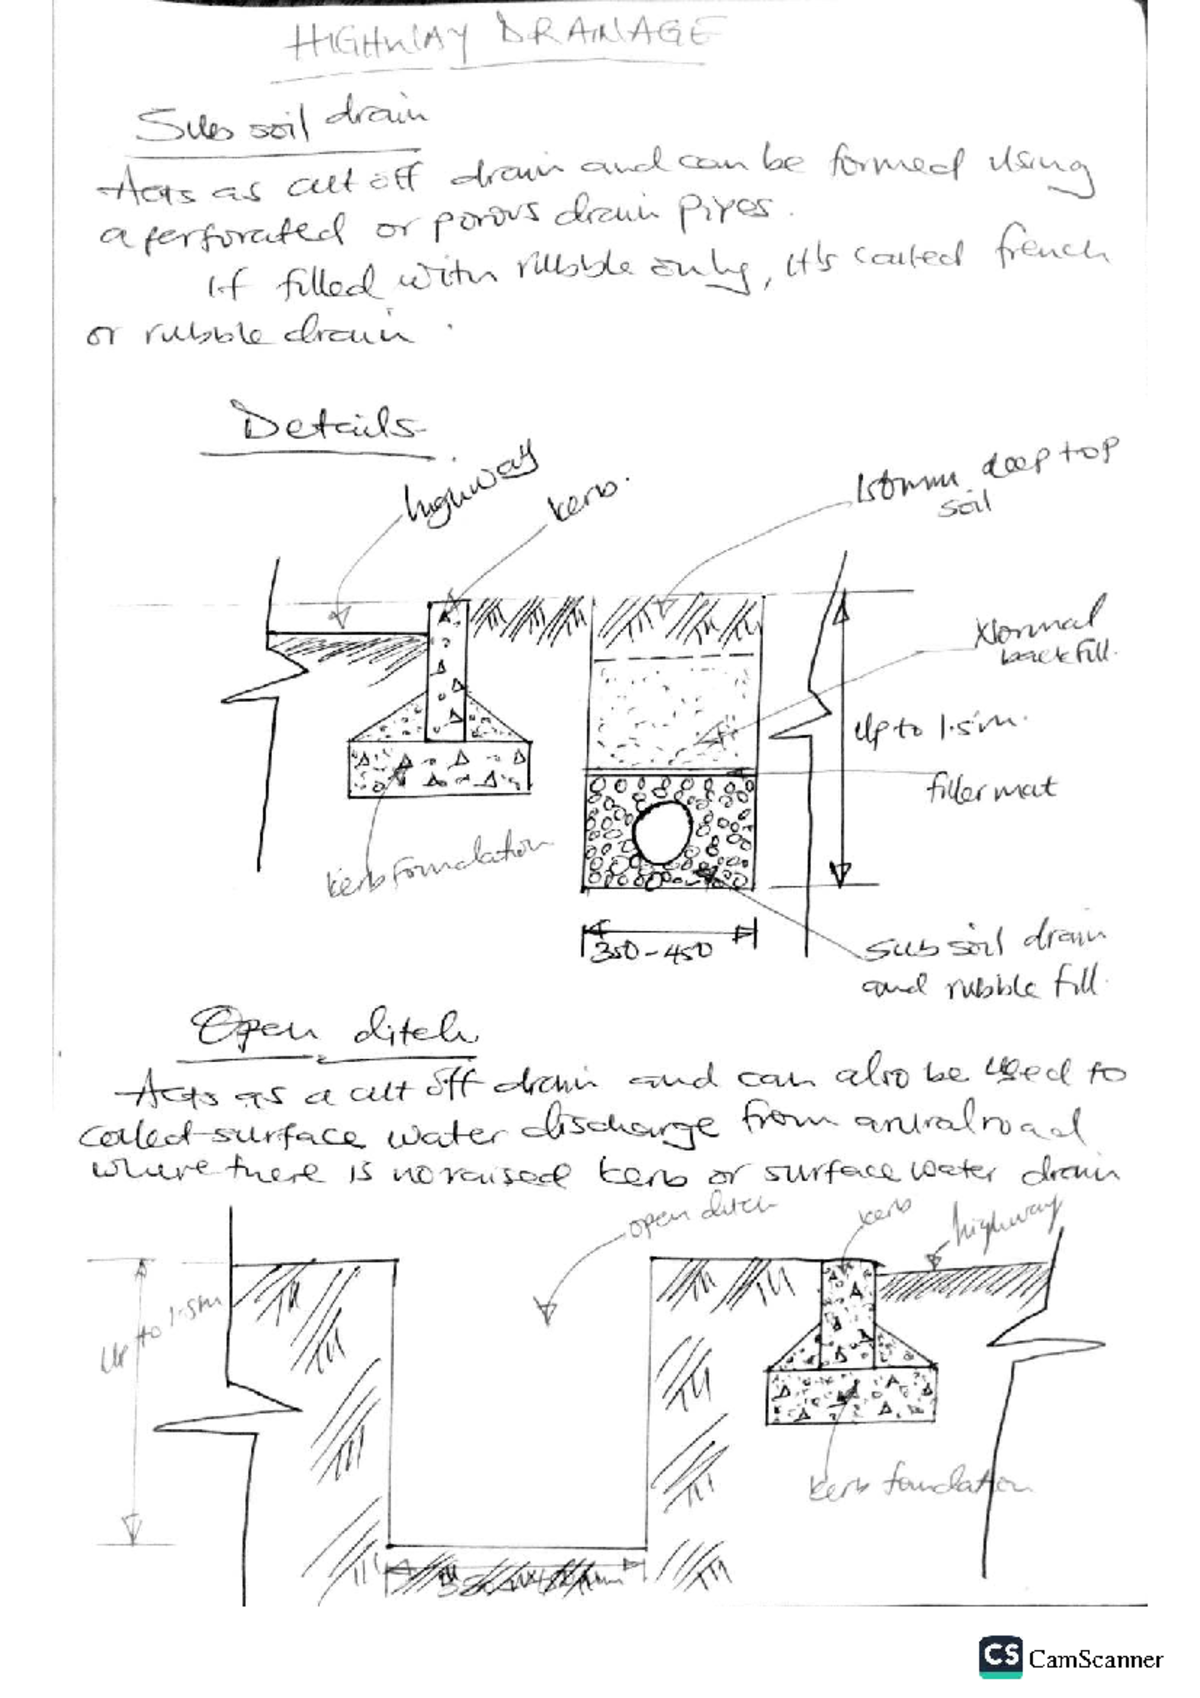 HIGHWAY DRAINAGE
Sub soil drain
Acts as cut off drain and can be formed using
a perforated or porous drain pipes.
If filled with rubble only, it's called french
or rubble drain.
Details
highway
kerb.
150mm deep top
soil
Normal
backfill.
up to 1.5m.
filler mat
kerb foundation
350-450
sub soil drain
and rubble fill.
Open ditch
Acts as a cut off drain and can also be used to
collect surface water discharge from a rural road
where there is no raised kerb or surface water drain
open ditch
kerb
highway
up to 1.5m
kerb foundation
CS CamScanner